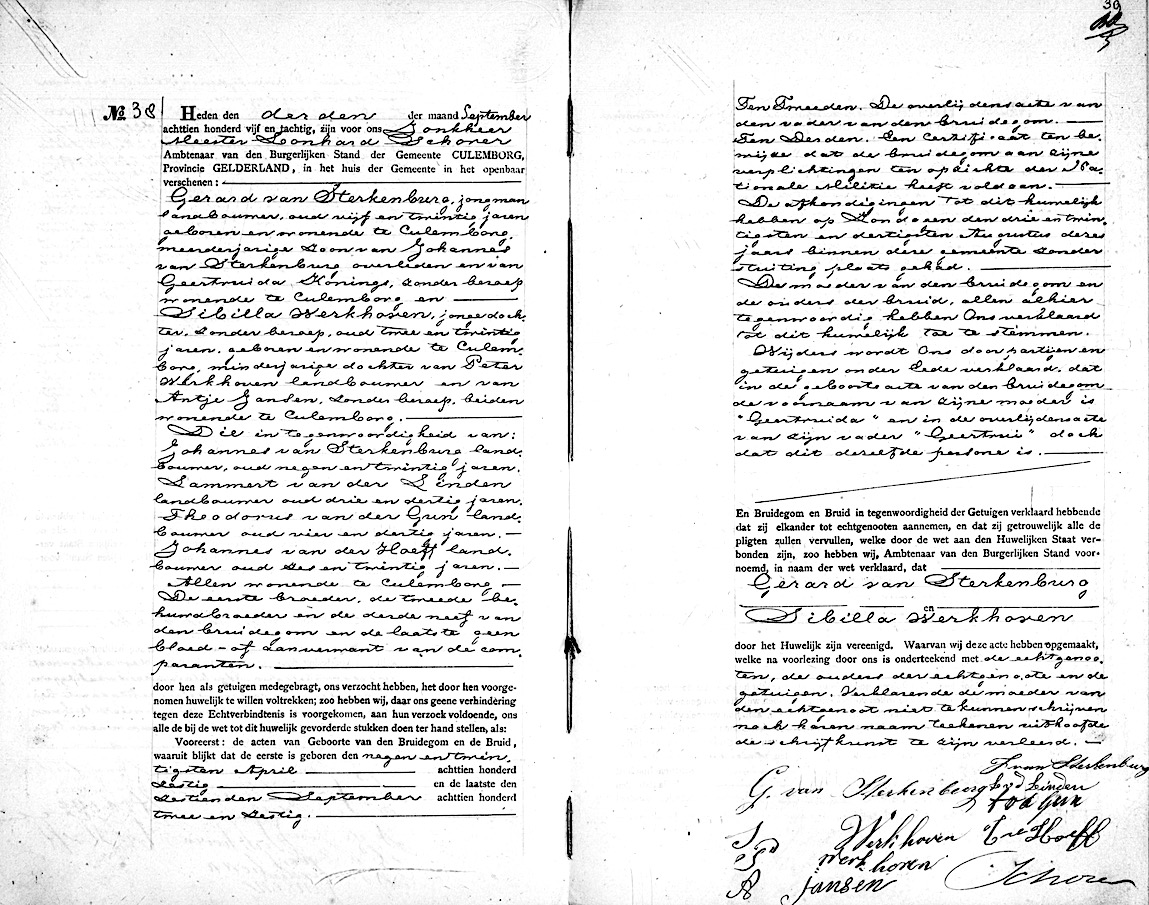 No 38
Heden den derden der maand September
achttien honderd vijf en tachtig, zijn voor ons Jonkheer
Meester Leonhard Schorer
Ambtenaar van den Burgerlijken Stand der Gemeente CULEMBORG,
Provincie GELDERLAND, in het huis der Gemeente in het openbaar
verschenen :
Gerard van Sterkenburg, jongman
landbouwer, oud vijf en twintig jaren
geboren en wonende te Culemborg,
meerderjarige zoon van Johannes
van Sterkenburg overleden en van
Geertruida Konings, zonder beroep
wonende te Culemborg en
Sibilla Werkhoven, jonge doch-
ter, zonder beroep, oud twee en twintig
jaren, geboren en wonende te Culem-
borg, minderjarige dochter van Peter
Werkhoven landbouwer en van
Antje Jansen, zonder beroep, beiden
wonende te Culemborg.
Die in tegenwoordigheid van:
Johannes van Sterkenburg land-
bouwer, oud negen en twintig jaren,
Lammert van der Linden
landbouwer oud drie en dertig jaren,
Theodorus van der Gun land-
bouwer oud vier en dertig jaren.
Johannes van der Hoeff land-
bouwer oud zes en twintig jaren.
Allen wonende te Culemborg
De eerste broeder, de tweede be-
huwdbroeder en de derde neef van
den bruidegom en de laatste geen
bloed- of aanverwant van de com-
paranten.
door hen als getuigen medegebragt, ons verzocht hebben, het door hen voorge-
nomen huwelijk te willen voltrekken; zoo hebben wij, daar ons geene verhindering
tegen deze Echtverbindtenis is voorgekomen, aan hun verzoek voldoende, ons
alle de bij de wet tot dit huwelijk gevorderde stukken doen ter hand stellen, als:
Vooreerst : de acten van Geboorte van den Bruidegom en de Bruid,
waaruit blijkt dat de eerste is geboren den negen en twin-
tigsten April achttien honderd
zestig en de laatste den
zestienden September achttien honderd
twee en zestig.
39
Ten Tweeden. De overlijdensacte van
den vader van den bruidegom.
Ten Derden. Een certificaat ten be-
wijze dat de bruidegom aan zijne
verplichtingen ten opzichte der Na-
tionale Militie heeft voldaan.
De afkondigingen tot dit huwelijk
hebben op Zondag den drie en twin-
tigsten en dertigsten Augustus dezes
jaars binnen deze gemeente zonder
stuiting plaats gehad.
De moeder van den bruidegom en
de ouders der bruid, allen alhier
tegenwoordig hebben Ons verklaard
tot dit huwelijk toe te stemmen.
Wijders wordt Ons door partijen en
getuigen onder eede verklaard, dat
in de geboorteacte van den bruidegom
de voornaam van zijne moeder is
"Geertruida" en in de overlijdensacte
van zijn vader "Geertrui" doch
dat dit dezelfde persone is.
En Bruidegom en Bruid in tegenwoordigheid der Getuigen verklaard hebbende
dat zij elkander tot echtgenooten aannemen, en dat zij getrouwelijk alle de
pligten zullen vervullen, welke door de wet aan den Huwelijken Staat ver-
bonden zijn, zoo hebben wij, Ambtenaar van den Burgerlijken Stand voor-
noemd, in naam der wet verklaard, dat
Gerard van Sterkenburg
en
Sibilla Werkhoven
door het Huwelijk zijn vereenigd. Waarvan wij deze acte hebben opgemaakt,
welke na voorlezing door ons is onderteekend met de echtgenoo-
ten, de ouders der echtgenoote en de
getuigen. Verklarende de moeder van
den echtgenoot niet te kunnen schrijven
noch haren naam teekenen uit hoofde
de schrijfkunst te zijn verleerd.
J van Sterkenburg
G. van Sterkenburg L vd Linden
T v d Gun
S Werkhoven J v d Hoeff
P Werkhoven
A Jansen Schorer